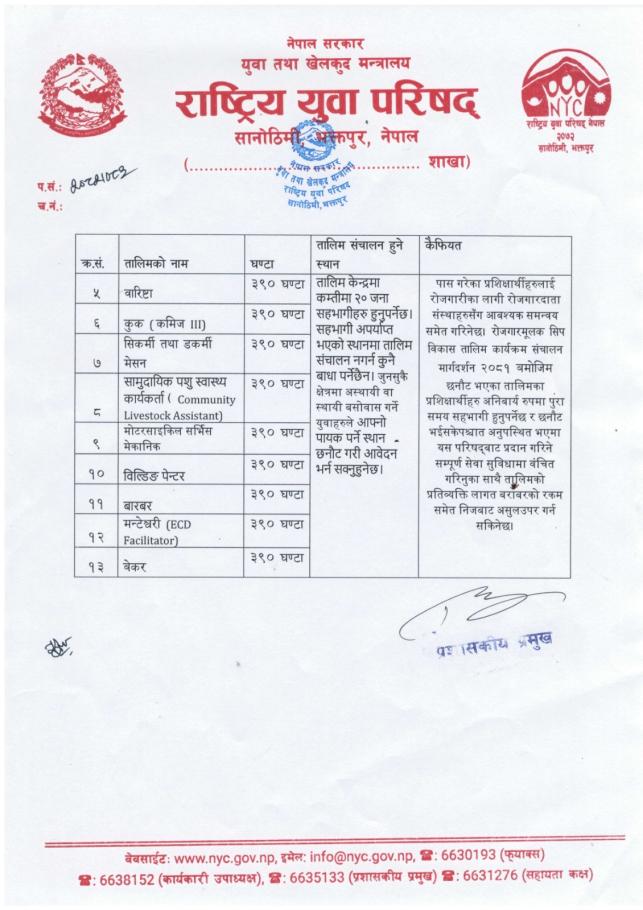 नेपाल सरकार
युवा तथा खेलकुद मन्त्रालय
राष्ट्रिय युवा परिषद्
सानोठिमी, भक्तपुर, नेपाल
(.................................................. शाखा)
NYC
राष्ट्रिय युवा परिषद् नेपाल
२०७२
सानोठिमी, भक्तपुर
नेपाल सरकार
युवा तथा खेलकुद मन्त्रालय
राष्ट्रिय युवा परिषद
सानोठिमी, भक्तपुर
प.सं.: २०८२।०८३
च.नं.:
क्र.सं. तालिमको नाम घण्टा तालिम संचालन हुने स्थान कैफियत
५ वारिष्टा ३९० घण्टा
६ कुक ( कमिज III) ३९० घण्टा
७ सिकर्मी तथा डकर्मी मेसन ३९० घण्टा
८ सामुदायिक पशु स्वास्थ्य कार्यकर्ता ( Community Livestock Assistant) ३९० घण्टा
९ मोटरसाइकिल सर्भिस मेकानिक ३९० घण्टा
१० विल्डिङ पेन्टर ३९० घण्टा
११ बारबर ३९० घण्टा
१२ मन्टेश्वरी (ECD Facilitator) ३९० घण्टा
१३ बेकर ३९० घण्टा
तालिम केन्द्रमा
कम्तीमा २० जना
सहभागीहरु हुनुपर्नेछ।
सहभागी अपर्याप्त
भएको स्थानमा तालिम
संचालन नगर्न कुनै
बाधा पर्नेछैन। जुनसुकै
क्षेत्रमा अस्थायी वा
स्थायी बसोवास गर्ने
युवाहरुले आफ्नो
पायक पर्ने स्थान
छनौट गरी आवेदन
भर्न सक्नुहुनेछ।
पास गरेका प्रशिक्षार्थीहरुलाई
रोजगारीका लागी रोजगारदाता
संस्थाहरुसँग आबश्यक समन्वय
समेत गरिनेछ। रोजगारमूलक सिप
विकास तालिम कार्यक्रम संचालन
मार्गदर्शन २०८१ बमोजिम
छनौट भएका तालिमका
प्रशिक्षार्थीहरु अनिबार्य रुपमा पुरा
समय सहभागी हुनुपर्नेछ र छनौट
भईसकेपश्चात अनुपस्थित भएमा
यस परिषद्‌बाट प्रदान गरिने
सम्पूर्ण सेवा सुविधामा वंचित
गरिनुका साथै तालिमको
प्रतिव्यक्ति लागत बरोबरको रकम
समेत निजबाट असुलउपर गर्न
सकिनेछ।
प्रशासकीय प्रमुख
वेबसाईट: www.nyc.gov.np, इमेल: info@nyc.gov.np, ☎: 6630193 (फ्याक्स)
☎: 6638152 (कार्यकारी उपाध्यक्ष), ☎: 6635133 (प्रशासकीय प्रमुख) ☎: 6631276 (सहायता कक्ष)